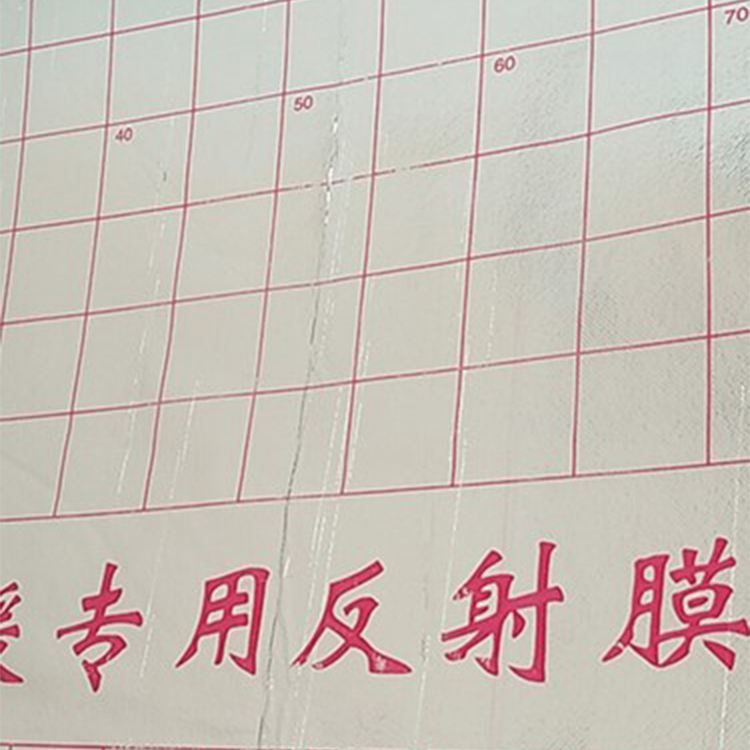 70
60
50
40
专用反射膜